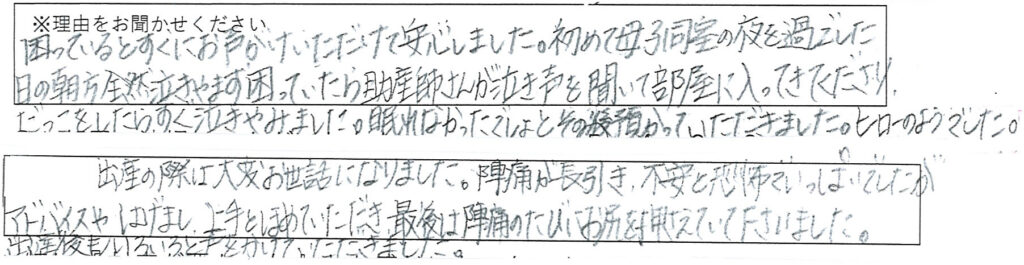 ※理由をお聞かせください
困っているとすぐにお声がけいただけて安心しました。初めて母子同室の夜を過ごした
日の朝方全然泣きやまず困っていたら助産師さんが泣き声を聞いて部屋に入ってきてくださり、
だっこをしたらすぐ泣きやみました。眠れなかったでしょとその後預かっていただきました。ヒーローのようでした。
出産の際は大変お世話になりました。陣痛が長引き、不安と恐怖でいっぱいでしたが
アドバイスやはげまし、上手とほめていただき、最後は陣痛のたびにお尻を押さえていて下さいました。
出産後もいろいろと声をかけていただきました。